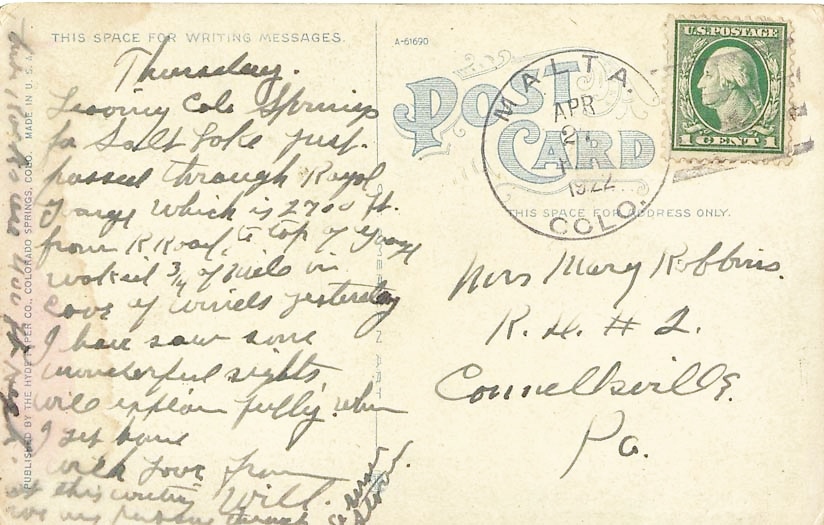 THIS SPACE FOR WRITING MESSAGES.
Thursday.
Leaving Colo Springs
for Salt Lake just
passed through Royal
Gorge which is 2700 ft.
from R Road to top of Gorge
walked 3/4 of mile in
Cave of Winds yesterday
I have saw some
wonderful sights
will explain fully when
I get home
with love from
Will.
at this writing
through
PUBLISHED BY THE HYDE PAPER CO., COLORADO SPRINGS, COLO. MADE IN U.S.A.
A-61690
POST CARD
THIS SPACE FOR ADDRESS ONLY.
MALTA.
APR
1922
COLO.
U.S. POSTAGE
1 CENT 1
Mrs Mary Robbins.
R. D. # 2.
Connellsville.
Pa.